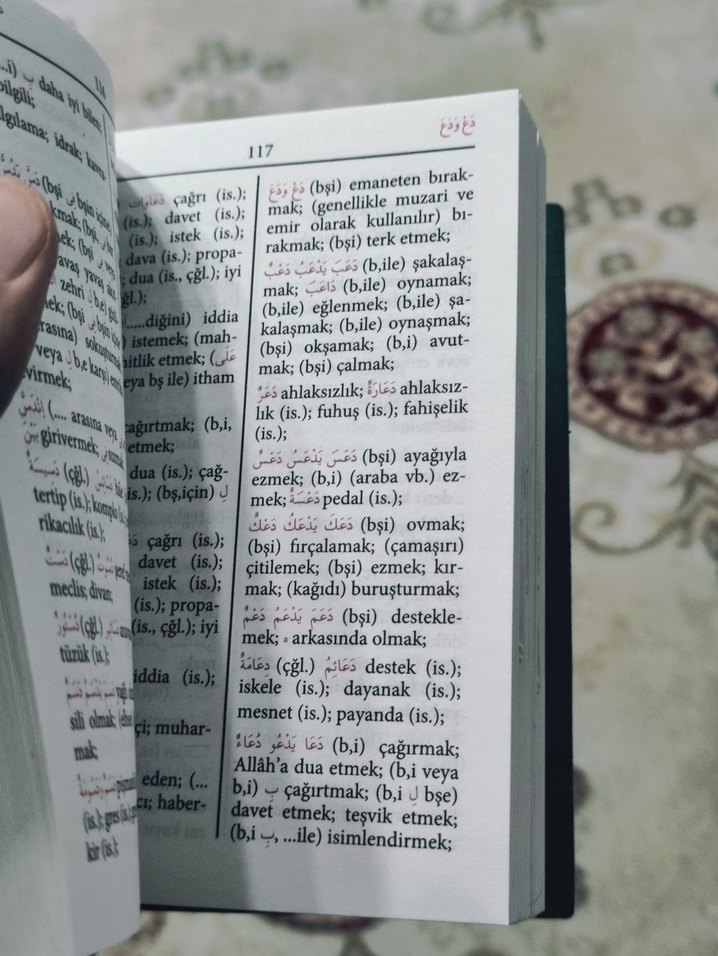 116
...i) بِ daha iyi bilen;
bilgili;
algılama; idrak; kavra-
(bşi فى bşin içine
zehri ل b,e)
veya ل b,e karşı)
virmek;
(.... arasına veya
بَيْنَ girivermek;
دَسِيسَةٌ (çğl.)
tertip (is.); komplo
rikacılık (is.);
دَسْتٌ
meclis; divan;
دُسْتُورٌ (çğl.)
tüzük (is.);
sili olmak;
mak;
(is.); gres (is.);
kir (is.);
117
دَعْ وَدَعَ
çağrı (is.);
(is.); davet (is.);
(is.); istek (is.);
dava (is.); propa-
dua (is., çğl.); iyi
ğl.);
.....diğini) iddia
istemek; (mah-
itlik etmek; (عَلَى
eya bş ile) itham
çağırtmak; (b,i,
etmek;
dua (is.); çağ-
is.); (bş,için) لِ
çağrı (is.);
davet (is.);
istek (is.);
(is.); propa-
(is., çğl.); iyi
iddia (is.);
çi; muhar-
eden; (...
cı; haber-
دَعْ وَدَعَ (bşi) emaneten bırak-
mak; (genellikle muzari ve
emir olarak kullanılır) bı-
rakmak; (bşi) terk etmek;
دَعَبَ يَدْعَبُ دَعْبٌ (b,ile) şakalaş-
mak; دَاعَبَ (b,ile) oynamak;
(b,ile) eğlenmek; (b,ile) şa-
kalaşmak; (b,ile) oynaşmak;
(bşi) okşamak; (b,i) avut-
mak; (bşi) çalmak;
دَعَرٌ ahlaksızlık; دَعَارَةٌ ahlaksız-
lık (is.); fuhuş (is.); fahişelik
(is.);
دَعَسَ يَدْعَسُ دَعْسٌ (bşi) ayağıyla
ezmek; (b,i) (araba vb.) ez-
mek; دَعْسَةٌ pedal (is.);
دَعَكَ يَدْعَكُ دَعْكٌ (bşi) ovmak;
(bşi) fırçalamak; (çamaşırı)
çitilemek; (bşi) ezmek; kır-
mak; (kağıdı) buruşturmak;
دَعَمَ يَدْعَمُ دَعْمٌ (bşi) destekle-
mek; ه arkasında olmak;
دِعَامَةٌ (çğl.) دَعَائِمُ destek (is.);
iskele (is.); dayanak (is.);
mesnet (is.); payanda (is.);
دَعَا يَدْعُو دُعَاءٌ (b,i) çağırmak;
Allâh'a dua etmek; (b,i veya
b,i) بِ çağırtmak; (b,i لِ bşe)
davet etmek; teşvik etmek;
(b,i بِ, ...ile) isimlendirmek;